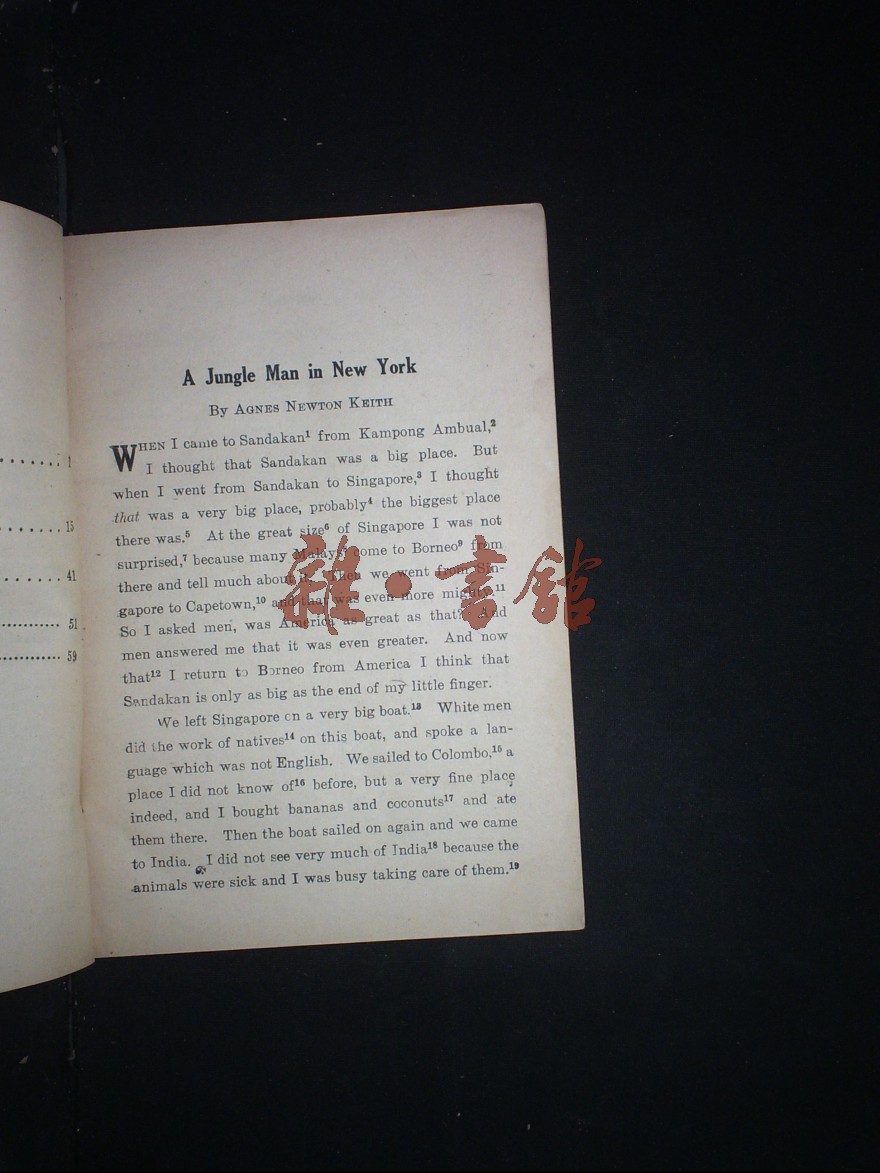 ........ 1
........ 15
........ 41
........ 51
........ 59
A Jungle Man in New York
By AGNES NEWTON KEITH
WHEN I came to Sandakan¹ from Kampong Ambual,²
I thought that Sandakan was a big place. But
when I went from Sandakan to Singapore,³ I thought
that was a very big place, probably⁴ the biggest place
there was.⁵ At the great size⁶ of Singapore I was not
surprised,⁷ because many Malays⁸ come to Borneo⁹ from
there and tell much about it. Then we went from Sin-
gapore to Capetown,¹⁰ and that was even more mighty.¹¹
So I asked men, was America as great as that? And
men answered me that it was even greater. And now
that¹² I return to Borneo from America I think that
Sandakan is only as big as the end of my little finger.
We left Singapore on a very big boat.¹³ White men
did the work of natives¹⁴ on this boat, and spoke a lan-
guage which was not English. We sailed to Colombo,¹⁵ a
place I did not know of¹⁶ before, but a very fine place
indeed, and I bought bananas and coconuts¹⁷ and ate
them there. Then the boat sailed on again and we came
to India. I did not see very much of India¹⁸ because the
animals were sick and I was busy taking care of them.¹⁹
雜·書館